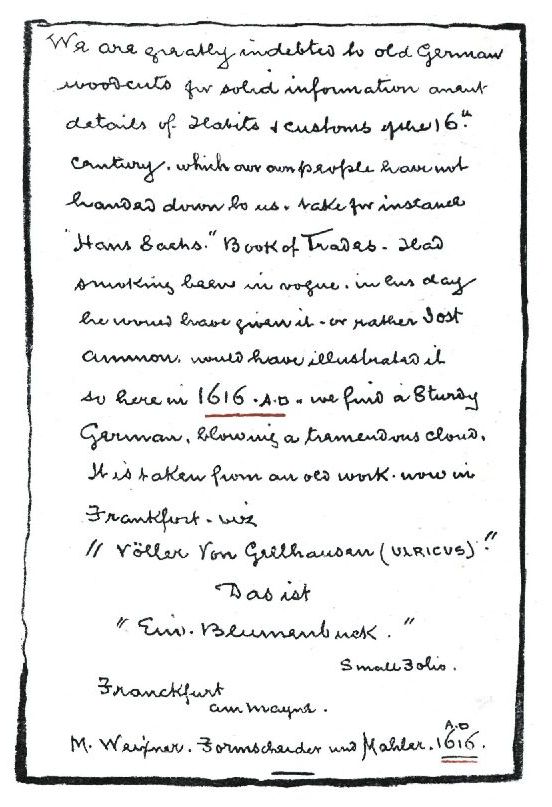 We are greatly indebted to old German
woodcuts for solid information anent
details of Habits & customs of the 16th
century. which our own people have not
handed down to us. take for instance
"Hans Sachs." Book of Trades - Had
smoking been in vogue. in his day
he would have given it - or rather Jost
Ammon. would have illustrated it
so here in 1616. A.D. we find a Sturdy
German, blowing a tremendous cloud.
It is taken from an old work. now in
Frankfort - viz
"Völler Von Gellhausen (ULRICUS)."
Das ist
"Ein. Blumenbuck."
Small Folio.
Franckfurt
am Mayne.
M. Weixner. Formscheider und Mahler. A.D 1616.